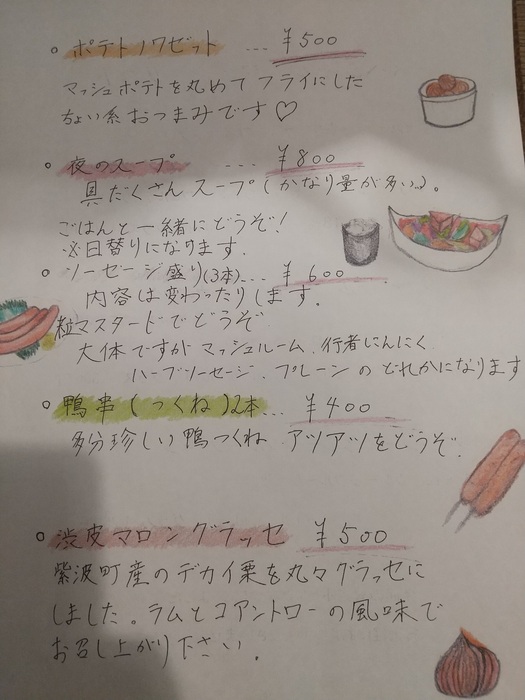 。ポテトノワゼット ... ¥500
マッシュポテトを丸めてフライにした
ちょい系おつまみです♡
。夜のスープ ... ¥800
具だくさんスープ(かなり量が多い..)。
ごはんと一緒にどうぞ!
※日替りになります.
。ソーセージ盛り(3本)... ¥600
内容は変わったりします.
粒マスタードでどうぞ
大体ですがマッシュルーム、行者にんにく、
ハーブソーセージ、プレーンのどれかになります
。鴨串(つくね)2本... ¥400
多分珍しい鴨つくね アツアツをどうぞ.
。渋皮マロングラッセ ¥500
紫波町産のデカイ栗を丸々グラッセに
しました。ラムとコアントローの風味で
お召し上がり下さい.